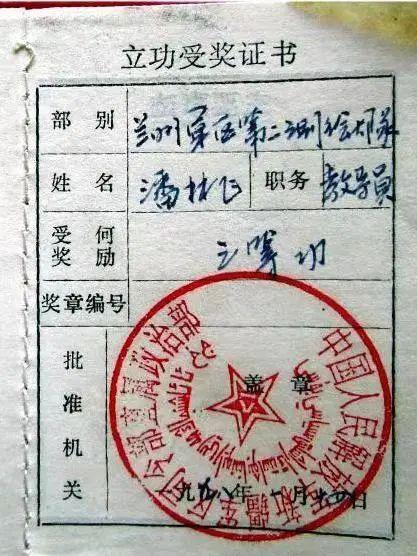 立功受奖证书
部别 兰州军区第二测绘大队
姓名 潘林飞 职务 教导员
受何奖励 三等功
奖章编号
批准机关
盖章
中国人民解放军新疆军区司令部直属政治部
一九九八年一月 日